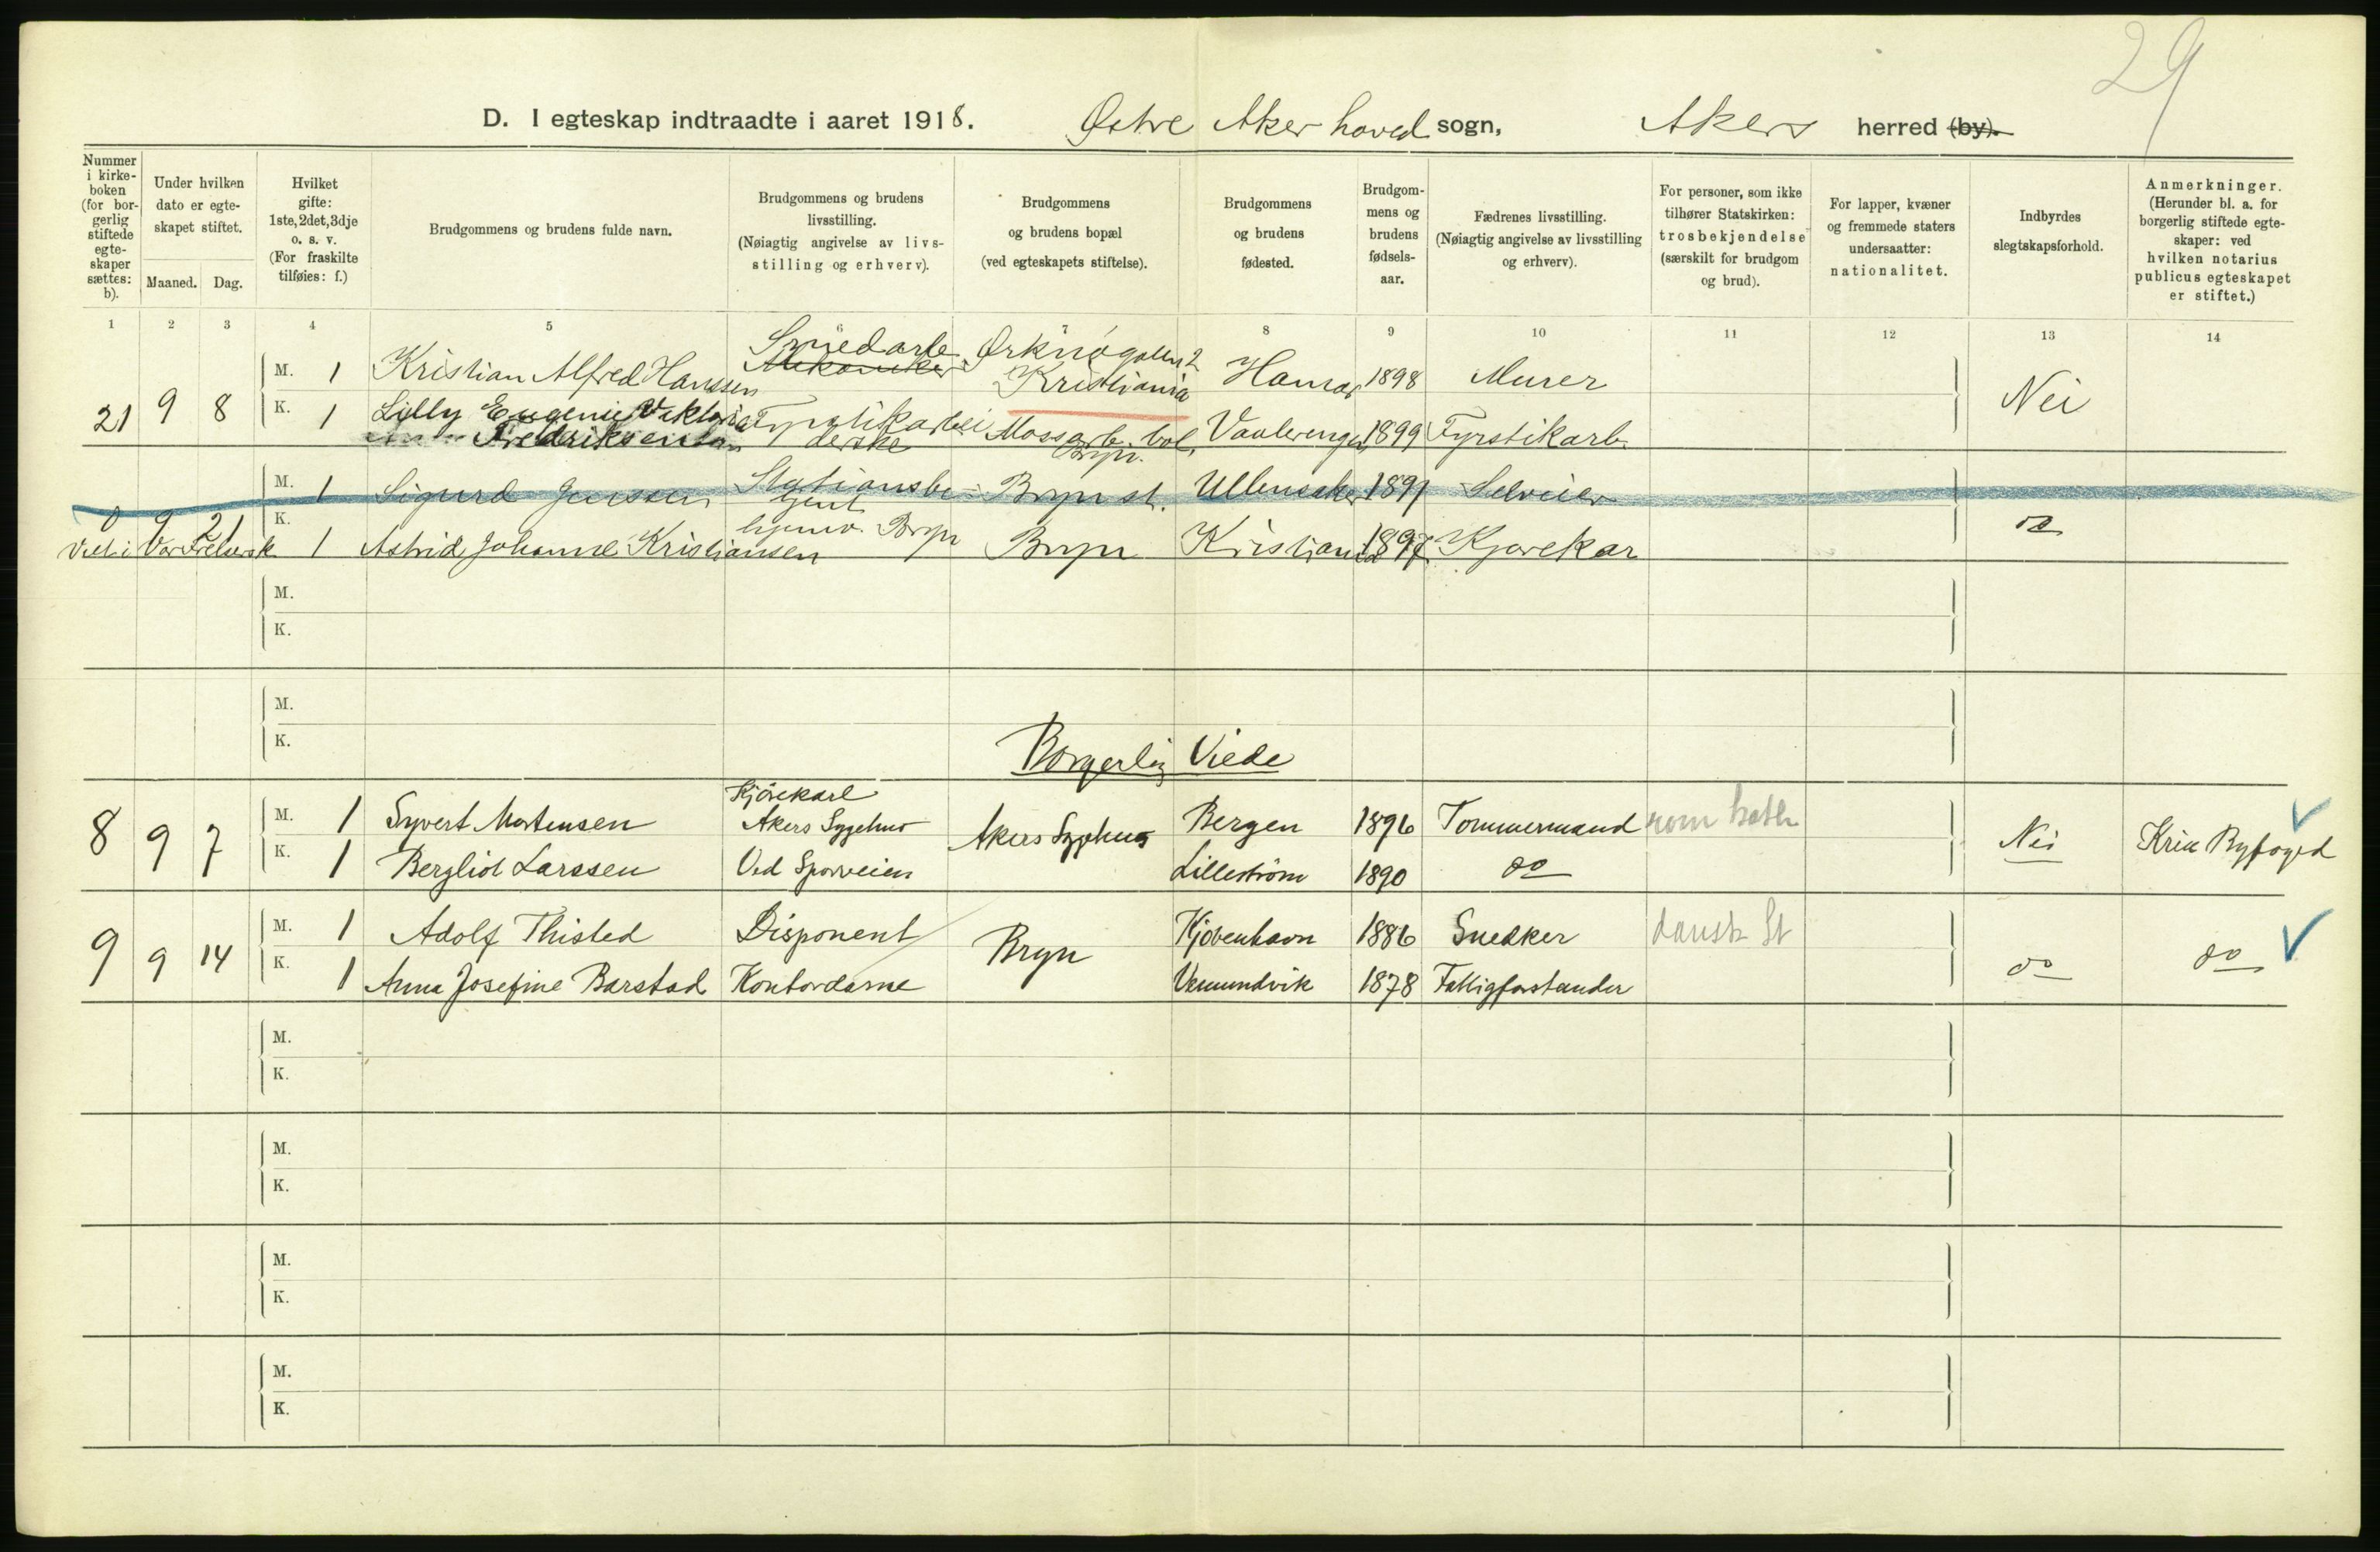 29
D. I egteskap indtraadte i aaret 1918. Østre Aker hoved sogn, Akers herred (by).
Nummer i kirke-boken (for bor-gerlig stiftede egte-skaper sættes: b).
Under hvilken dato er egte-skapet stiftet.
Maaned. Dag.
Hvilket gifte: 1ste, 2det, 3dje o. s. v. (For fraskilte tilføies: f.)
Brudgommens og brudens fulde navn.
Brudgommens og brudens livsstilling. (Nøiagtig angivelse av livs-stilling og erhverv).
Brudgommens og brudens bopæl (ved egteskapets stiftelse).
Brudgommens og brudens fødested.
Brudgom-mens og brudens fødsels-aar.
Fædrenes livsstilling. (Nøiagtig angivelse av livsstilling og erhverv).
For personer, som ikke tilhører Statskirken: trosbekjendelse (særskilt for brudgom og brud).
For lapper, kvæner og fremmede staters undersaatter: nationalitet.
Indbyrdes slegtskapsforhold.
Anmerkninger. (Herunder bl. a. for borgerlig stiftede egte-skaper: ved hvilken notarius publicus egteskapet er stiftet.)
1 2 3 4 5 6 7 8 9 10 11 12 13 14
Smedarb. Ørknøgaten 2
M. 1 Kristian Alfred Hanssen Mekaniker Kristiania Hamar 1898 Murer
21 9 8 Nei
K. 1 Lilly Eugenie Viktoria Fyrstikarbei Mossarb. bol. Vaalerengen 1899 Fyrstikarb.
Fredriksen derske Bryn.
M. 1 Sigurd Jenssen Stationsbe- Bryn st. Ullensaker 1891 Selveier
tjent
0 9 21 K. hjemv. Bryn do
Viet i Vor Frelsersk 1 Astrid Johanne Kristiansen Bryn Kristiania 1897 Kjørekar
M.
K.
M.
K.
Borgerlig Viede
Kjørekarl
M. 1 Syvert Mortensen Akers Sygehus Akers Sygehus Bergen 1896 Tømmermand rom kath
8 9 7 Nei Kria Byfoged
K. 1 Bergliot Larssen Ved Sporveien Lillestrøm 1890 do
M. 1 Adolf Thisted Disponent Kjøbenhavn 1886 Snedker dansk St
9 9 14 Bryn do do
K. 1 Anna Josefine Barstad Kontordame Vemundvik 1878 Fattigforstander
M.
K.
M.
K.
M.
K.
M.
K.